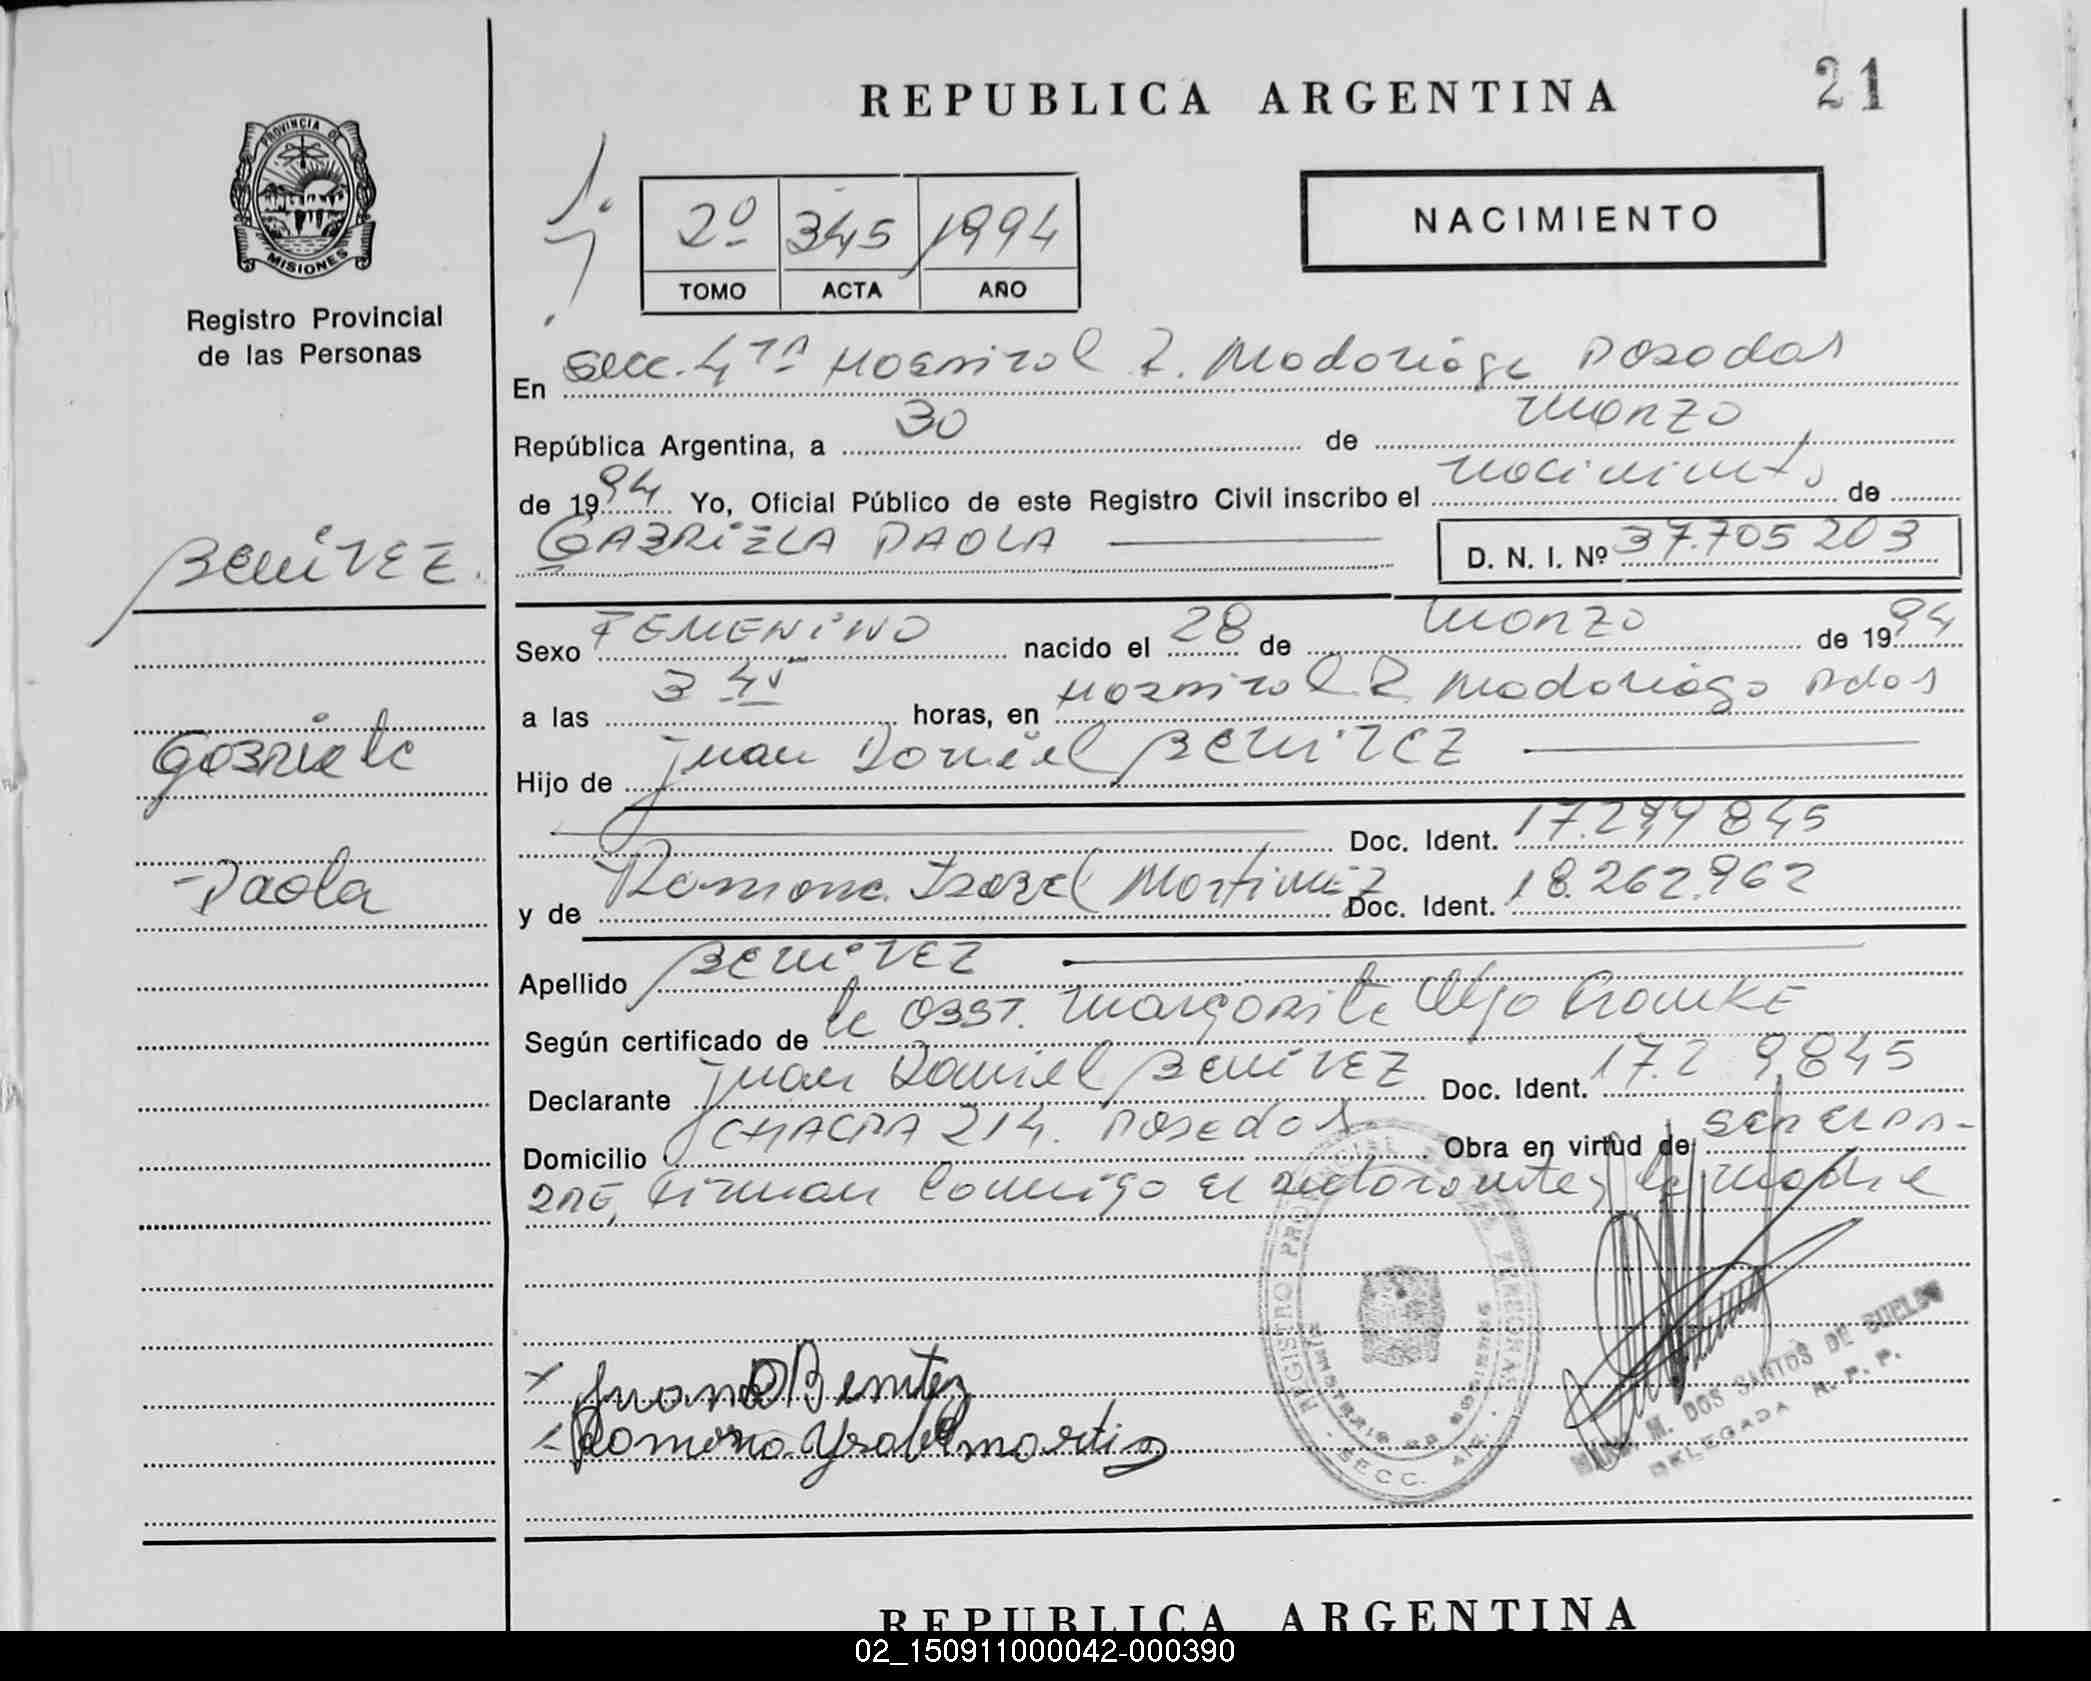 REPUBLICA ARGENTINA
21
PROVINCIA DE
MISIONES
Registro Provincial
de las Personas
2º 345 1994
TOMO ACTA AÑO
NACIMIENTO
En Secc. 4ta Hospital R. Madariaga Posadas
República Argentina, a 30 de marzo
de 1994 Yo, Oficial Público de este Registro Civil inscribo el nacimiento de
GABRIELA PAOLA
D. N. I. Nº 37.705 203
BENÍTEZ.
Sexo FEMENINO nacido el 28 de marzo de 1994
a las 3 45 horas, en Hospital R. Madariaga Pdas
Gabriela
Hijo de Juan Daniel BENITEZ
Doc. Ident. 17.299 845
Paola
y de Ramona Isabel Martinez Doc. Ident. 18.262.962
Apellido BENITEZ
Según certificado de la OBST. Margarita Olga
Declarante Juan Daniel BENÍTEZ Doc. Ident. 17.2 9845
Domicilio CHACRA 214. Posadas Obra en virtud de SER EL PA-
DRE, Firman conmigo el declarante y la madre
REGISTRO PROVINCIAL DE LAS PERSONAS
SECC. 4ta.
Juan D Benitez
Ramona Ysabel martinez
M. DOS SANTOS DE BUELDO
DELEGADA R. P. P.
REPUBLICA ARGENTINA
02_150911000042-000390